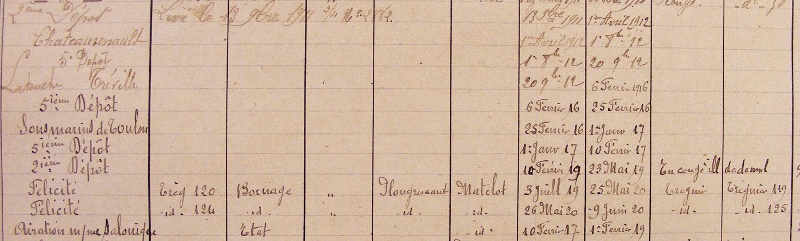 2ème Dépôt Levé le 13 9bre 1911 13 9bre 1911 1er Avril 1912
Chateaurenault 1er Avril 1912 1er 9bre 12
5e Dépôt 1er 9bre 12 20 9bre 12
Latouche Tréville 20 9bre 12 6 Fevrier 1916
5ième Dépôt 6 Fevrier 16 25 Fevrier 16
Sousmarins de Toulon 25 Fevrier 16 1er Janv 17
5ième Dépôt 1er Janv 17 10 Février 17
2ième Dépôt 10 Février 19 23 Mai 19 En congé ill
Félicité Treg 120 Bornage " Plougrescant Matelot 3 Juill 19 25 Mai 20 Treguier Treguier 119
Félicité -id- 124 -id- " -id- -id- 26 Mai 20 9 Juin 20 -id- -id- 125
Aviation m/me Salonique Etat -id- 10 Fevr 17 1er Fevr 19